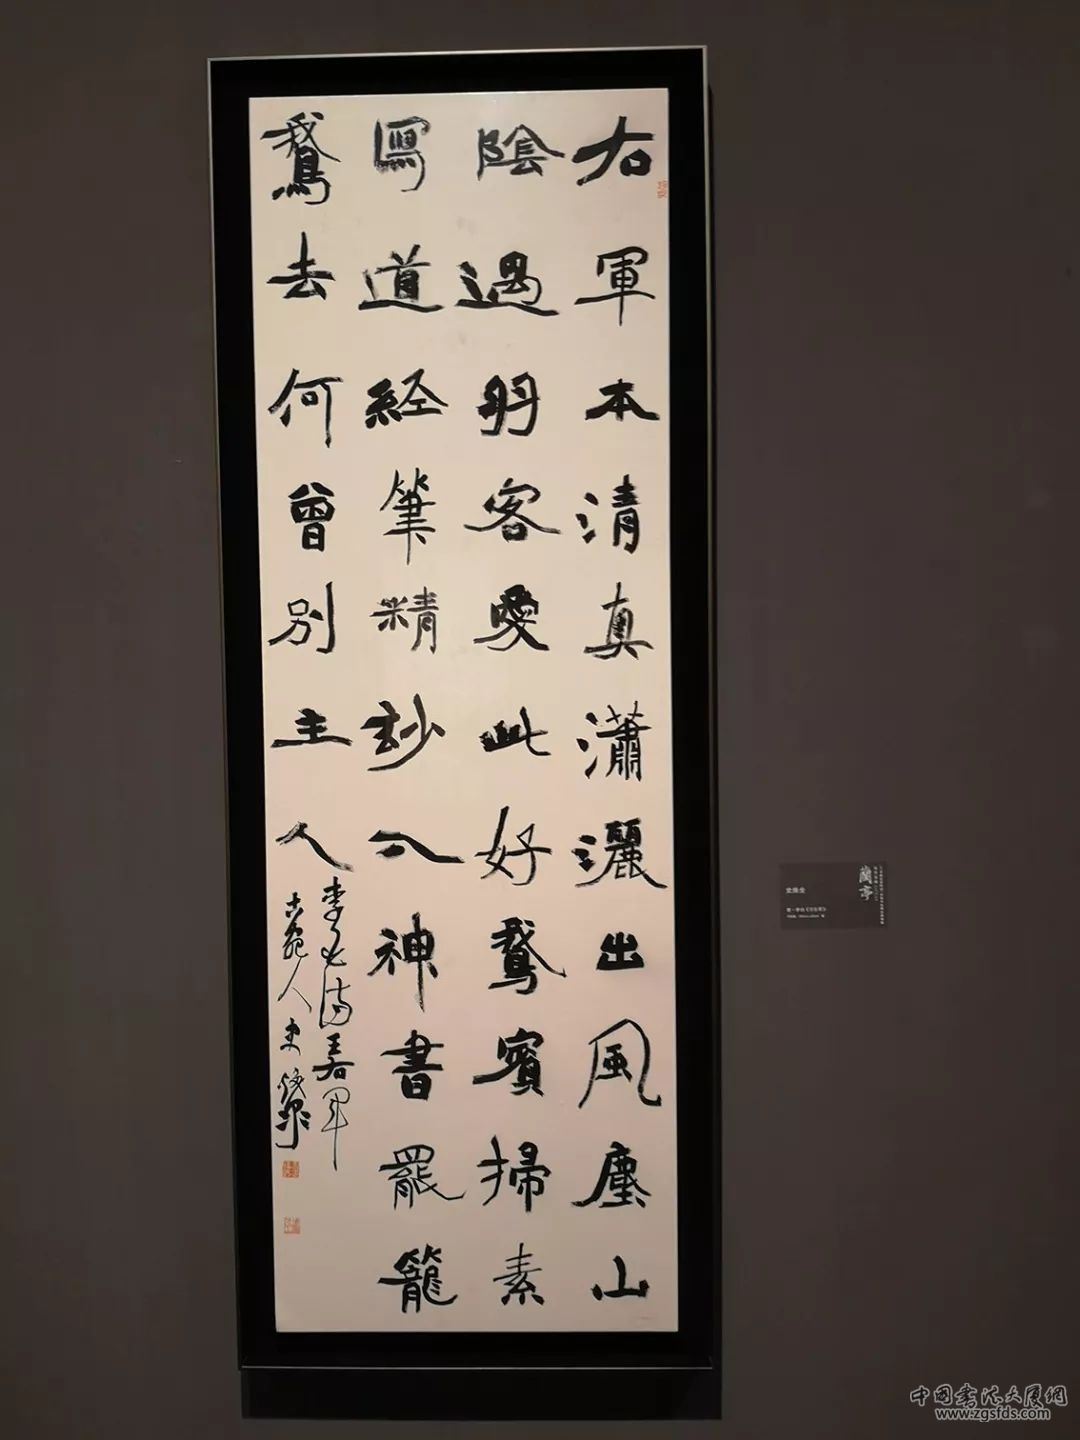 右軍本清真瀟灑出風塵山
陰過羽客愛此好鵞賓掃素
寫道経筆精玅入神書罷籠
鵞去何曾別主人
李白詩
古宛人史焕全
史焕全
蘭亭
中国书法大厦網
www.zgsfds.com